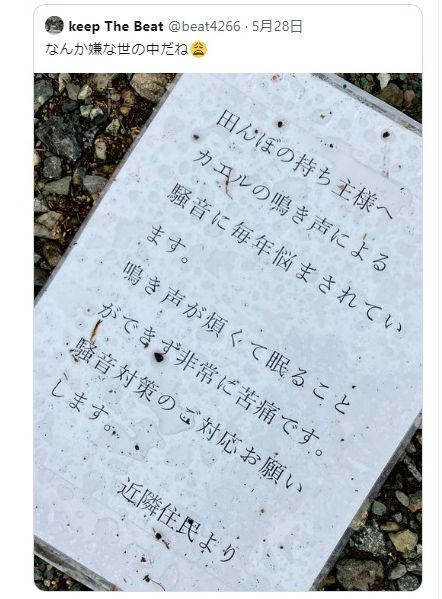 keep The Beat @beat4266 · 5月28日
なんか嫌な世の中だね😩
田んぼの持ち主様へ
カエルの鳴き声による
騒音に毎年悩まされてい
ます。
鳴き声が煩くて眠ること
ができず非常に苦痛です。
騒音対策のご対応お願い
します。
近隣住民より